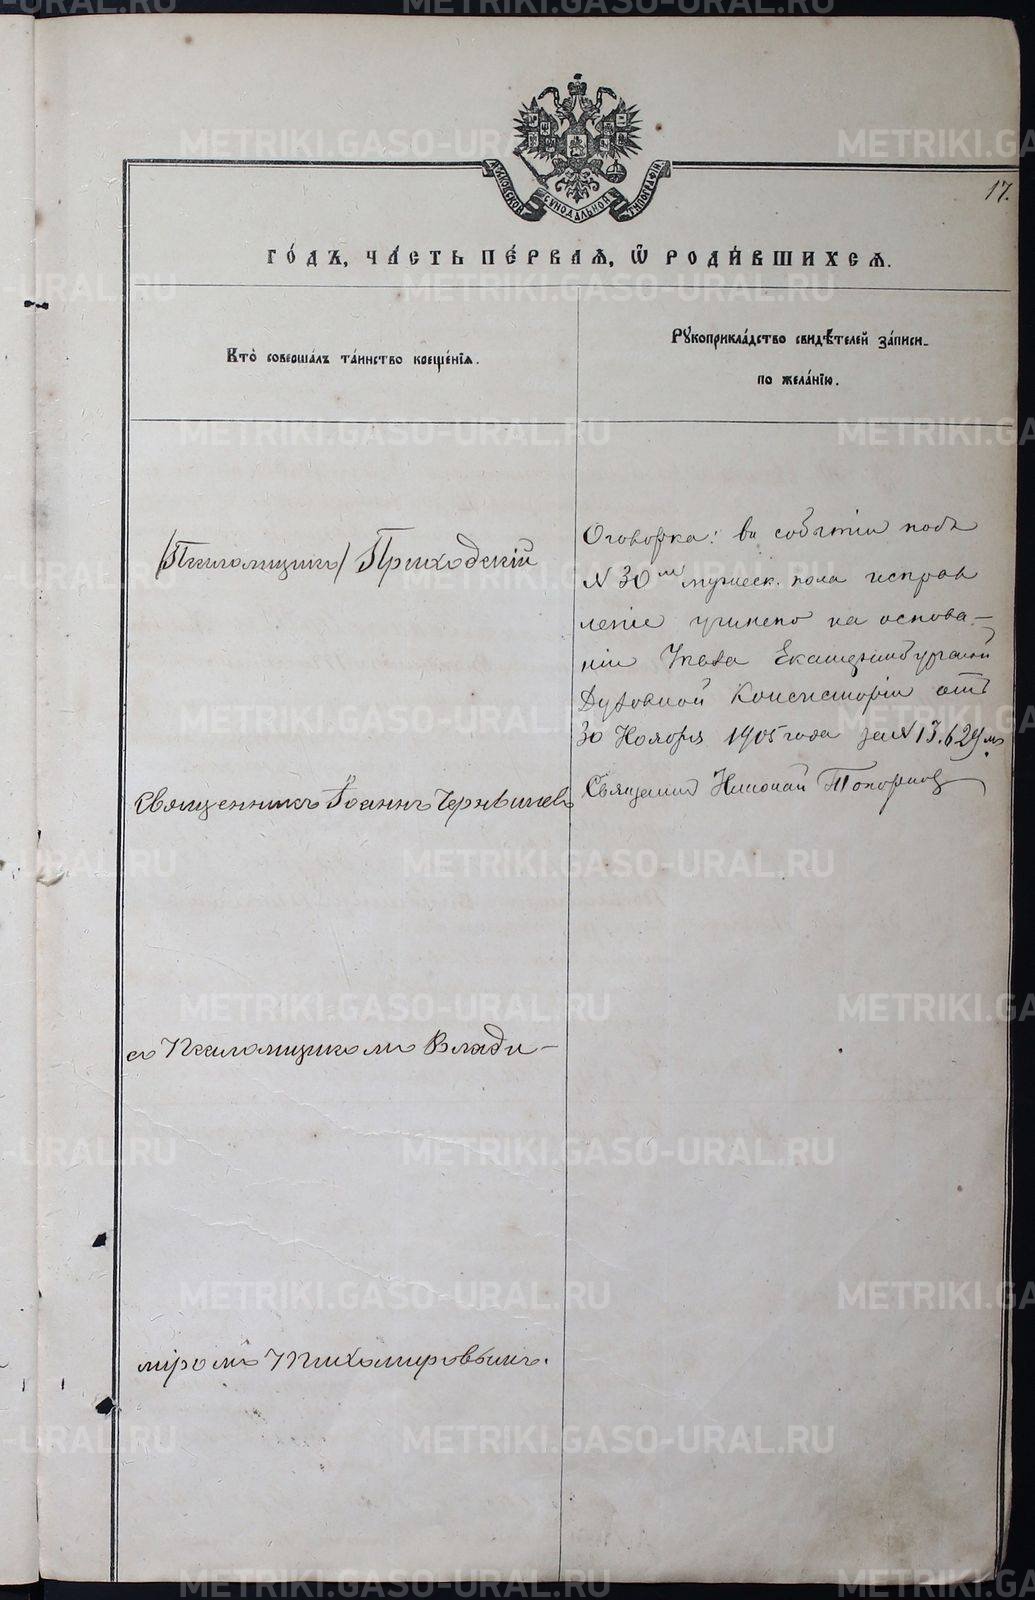 17.
МОСКОВСКОЙ СѴНОДАЛЬНОЙ ТИПОГРАФІИ
ГО́ДЪ, ЧА́СТЬ ПЕ́РВАѦ, Ѿ РОДИ́ВШИХСѦ.
Кто̀ соверша́лъ та́инство креще́нїѧ.
Рꙋкоприкла́дство свидѣ́телей за́писи
по жела́нїю.
/Псаломщикъ/ Приходскій
Священникъ Іоаннъ
съ Псаломщикомъ Влади-
міромъ Тихомировымъ.
Оговорка: въ событіи подъ
№ 30 м мужеск. пола исправ
леніе учинено на основа-
ніи Указа Екатеринбургской
Духовной Консисторіи отъ
30 Ноября 1905 года за № 13.629 мъ
Священник Николай Топорков
METRIKI.GASO-URAL.RU